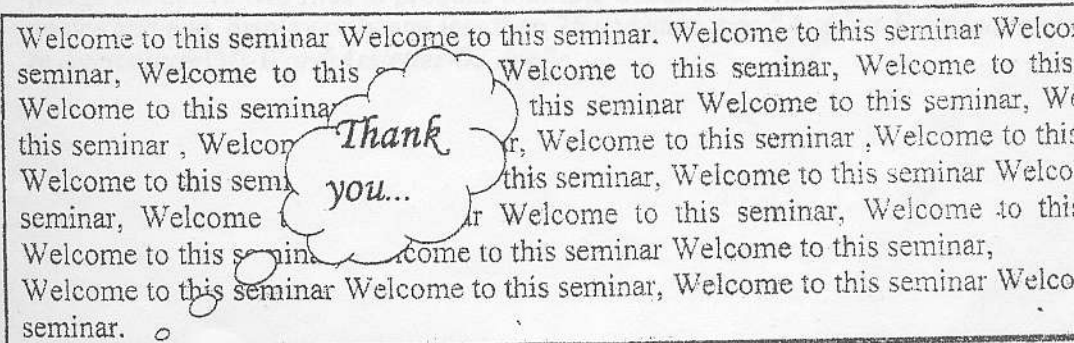 Welcome to this seminar Welcome to this seminar. Welcome to this seminar
seminar, Welcome to this Welcome to this seminar, Welcome to this
Welcome to this this seminar Welcome to this seminar,
this seminar , Welcome to this seminar ,Welcome to this
Welcome to this this seminar, Welcome to this seminar
seminar, Welcome Welcome to this seminar, Welcome to this
Welcome to this to this seminar Welcome to this seminar,
Welcome to this seminar Welcome to this seminar, Welcome to this seminar
seminar.
Thank
you...